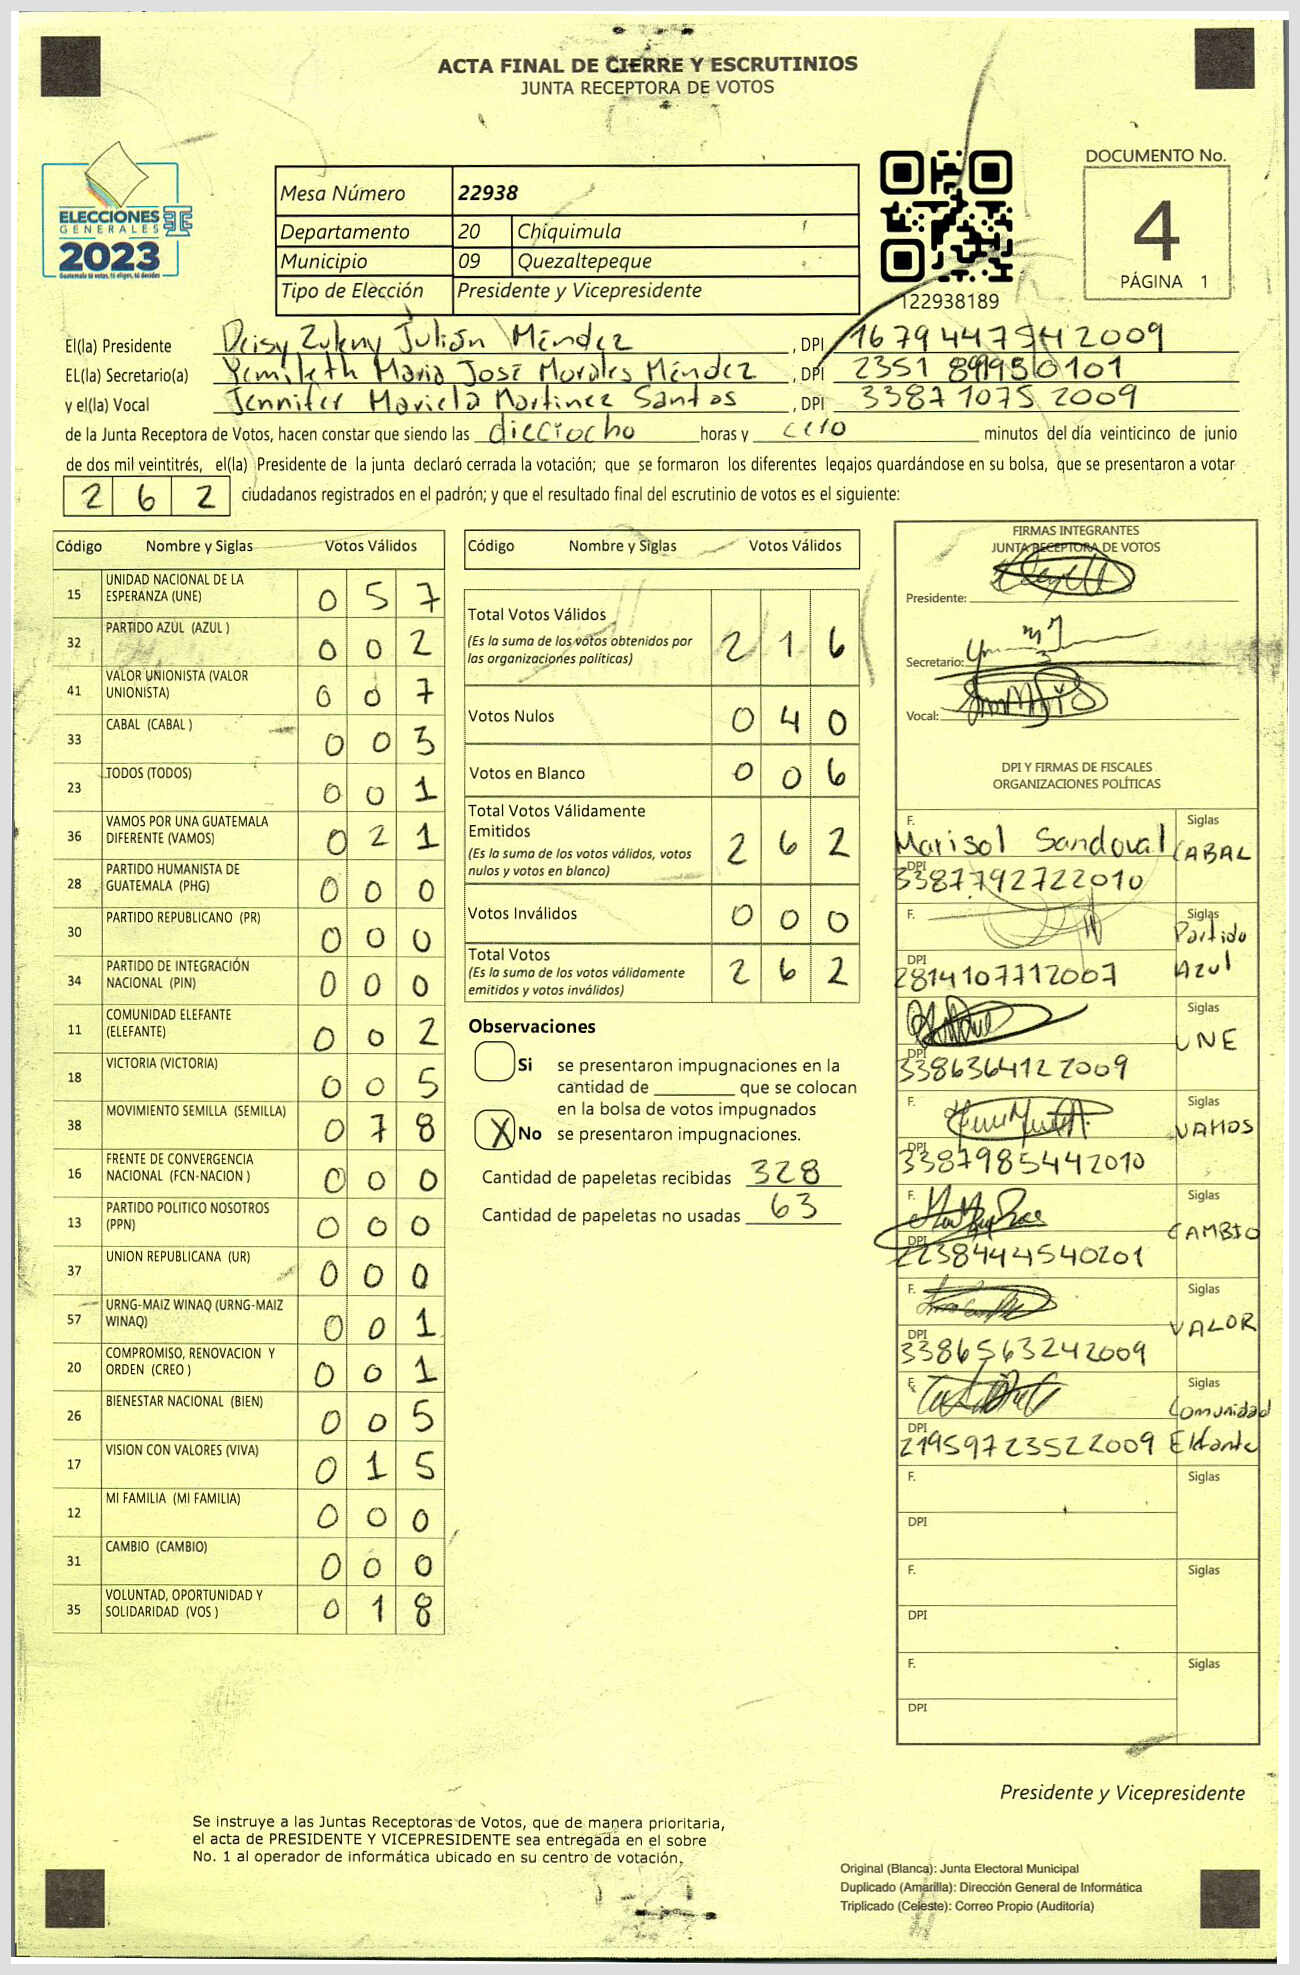 ACTA FINAL DE CIERRE Y ESCRUTINIOS
JUNTA RECEPTORA DE VOTOS
ELECCIONES
GENERALES
2023
Guatemala tú votas, tú eliges, tú decides
Mesa Número 22938
Departamento 20 Chiquimula
Municipio 09 Quezaltepeque
Tipo de Elección Presidente y Vicepresidente
122938189
DOCUMENTO No.
4
PÁGINA 1
El(la) Presidente Deisy Zuleny Julián Méndez, DPI 1679447542009
EL(la) Secretario(a) Yemileth Maria José Morales Méndez, DPI 2351 0101
y el(la) Vocal Jennifer Mariela Martinez Santos, DPI 33871075 2009
de la Junta Receptora de Votos, hacen constar que siendo las dieciocho horas y cero minutos del día veinticinco de junio
de dos mil veintitrés, el(la) Presidente de la junta declaró cerrada la votación; que se formaron los diferentes legajos guardándose en su bolsa, que se presentaron a votar
262 ciudadanos registrados en el padrón; y que el resultado final del escrutinio de votos es el siguiente:
Código Nombre y Siglas Votos Válidos
15 UNIDAD NACIONAL DE LA ESPERANZA (UNE) 0 5 7
32 PARTIDO AZUL (AZUL ) 0 0 2
41 VALOR UNIONISTA (VALOR UNIONISTA) 0 0 7
33 CABAL (CABAL ) 0 0 3
23 TODOS (TODOS) 0 0 1
36 VAMOS POR UNA GUATEMALA DIFERENTE (VAMOS) 0 2 1
28 PARTIDO HUMANISTA DE GUATEMALA (PHG) 0 0 0
30 PARTIDO REPUBLICANO (PR) 0 0 0
34 PARTIDO DE INTEGRACIÓN NACIONAL (PIN) 0 0 0
11 COMUNIDAD ELEFANTE (ELEFANTE) 0 0 2
18 VICTORIA (VICTORIA) 0 0 5
38 MOVIMIENTO SEMILLA (SEMILLA) 0 7 8
16 FRENTE DE CONVERGENCIA NACIONAL (FCN-NACION ) 0 0 0
13 PARTIDO POLITICO NOSOTROS (PPN) 0 0 0
37 UNION REPUBLICANA (UR) 0 0 0
57 URNG-MAIZ WINAQ (URNG-MAIZ WINAQ) 0 0 1
20 COMPROMISO, RENOVACION Y ORDEN (CREO ) 0 0 1
26 BIENESTAR NACIONAL (BIEN) 0 0 5
17 VISION CON VALORES (VIVA) 0 1 5
12 MI FAMILIA (MI FAMILIA) 0 0 0
31 CAMBIO (CAMBIO) 0 0 0
35 VOLUNTAD, OPORTUNIDAD Y SOLIDARIDAD (VOS ) 0 1 8
Código Nombre y Siglas Votos Válidos
Total Votos Válidos 2 1 6
(Es la suma de los votos obtenidos por
las organizaciones políticas)
Votos Nulos 0 4 0
Votos en Blanco 0 0 6
Total Votos Válidamente
Emitidos 2 6 2
(Es la suma de los votos válidos, votos
nulos y votos en blanco)
Votos Inválidos 0 0 0
Total Votos 2 6 2
(Es la suma de los votos válidamente
emitidos y votos inválidos)
Observaciones
Si se presentaron impugnaciones en la
cantidad de ________ que se colocan
en la bolsa de votos impugnados
X No se presentaron impugnaciones.
Cantidad de papeletas recibidas 328
Cantidad de papeletas no usadas 63
FIRMAS INTEGRANTES
JUNTA RECEPTORA DE VOTOS
Presidente:
Secretario:
Vocal:
DPI Y FIRMAS DE FISCALES
ORGANIZACIONES POLÍTICAS
F. Marisol Sandoval Siglas CABAL
DPI 3387792722010
F. Siglas Partido Azul
DPI 2814107712007
F. Siglas UNE
DPI 3386364122009
F. Siglas VAMOS
DPI 3387985442010
F. Siglas CAMBIO
DPI 2238444540201
F. Siglas VALOR
DPI 3386563242009
F. Siglas Comunidad Elefante
DPI 2195972352 2009
F. Siglas
DPI
F. Siglas
DPI
F. Siglas
DPI
Presidente y Vicepresidente
Se instruye a las Juntas Receptoras de Votos, que de manera prioritaria,
el acta de PRESIDENTE Y VICEPRESIDENTE sea entregada en el sobre
No. 1 al operador de informática ubicado en su centro de votación.
Original (Blanca): Junta Electoral Municipal
Duplicado (Amarilla): Dirección General de Informática
Triplicado (Celeste): Correo Propio (Auditoría)